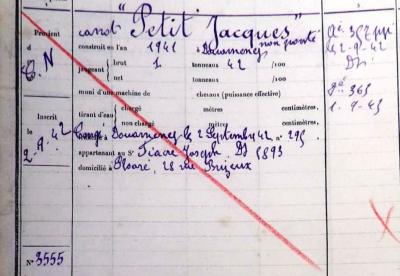 canot "Petit Jacques"
non ponté
Provient
d
C.N
construit en l'an 1941 à Douarnenez
jaugeant brut 1 tonneaux 42 /100
net tonneaux /100
muni d'une machine de chevaux (puissance effective)
tirant d'eau chargé mètres centimètres.
non chargé mètres centimètres.
Inscrit
le 2-9-42
Congé Douarnenez le 2 Septembre 42 n° 295
appartenant au Sr Fiacre Joseph Dz 5893
domicilié à Ploaré, 28 rue Brizeux
2-9-42
365
1-9-43
N° 3555